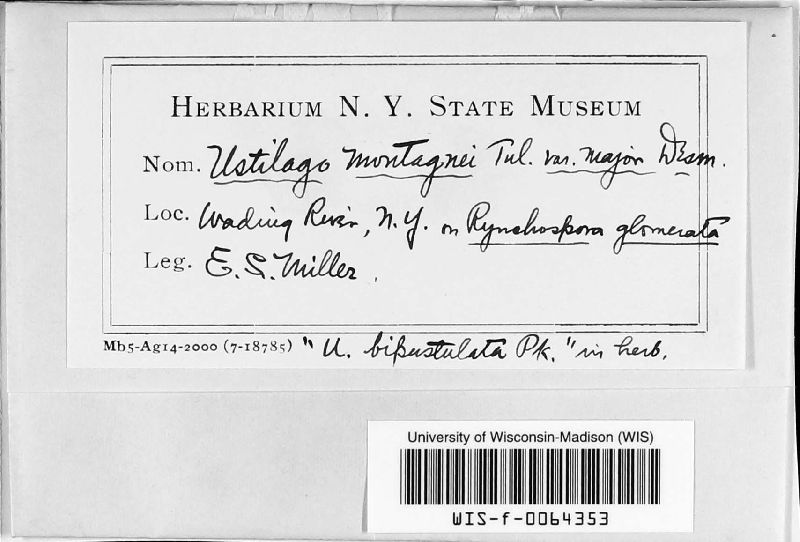 HERBARIUM N. Y. STATE MUSEUM
Nom. Ustilago montagnei Tul. var. major Desm.
Loc. Wading River, N.Y. on Rynchospora glomerata
Leg. E. S. Miller.
Mb5-Ag14-2000 (7-18785) "U. bipustulata Pk." in herb.
University of Wisconsin-Madison (WIS)
WIS-f-0064353